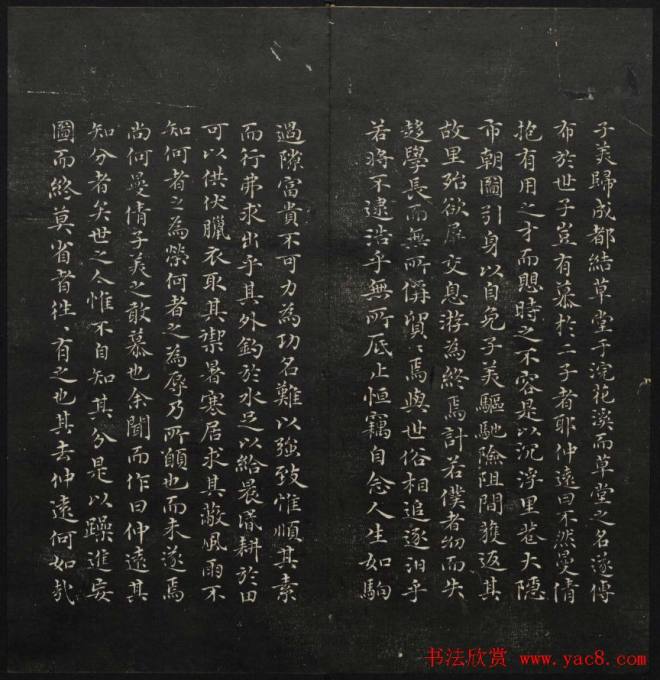 子美歸成都結草堂于浣花溪而草堂之名遂傳
布於世子豈有慕於二子者耶仲遠曰不然曼倩
抱有用之才而思時之不容是以沉浮里巷大隱
市朝圖引身以自免子美驅馳險阻間獲返其
故里殆欲屏交息游為終焉計若僕者幼而失
趍學長而無所偁貿〻焉與世俗相追逐汨乎
若將不逮浩乎無所厎止恒竊自念人生如駒
過隙富貴不可力為功名難以強致惟順其素
而行弗求出乎其外釣於水足以給晨飧耕於田
可以供伏臘衣取其禦暑寒居求其蔽風雨不
知何者之為榮何者之為辱乃所願也而未遂焉
尚何曼倩子美之敢慕也余聞而作曰仲遠其
知分者矣世之人惟不自知其分是以躁進妄
圖而終莫省者往〻有之也其去仲遠何如哉
书法欣赏 www.yac8.com